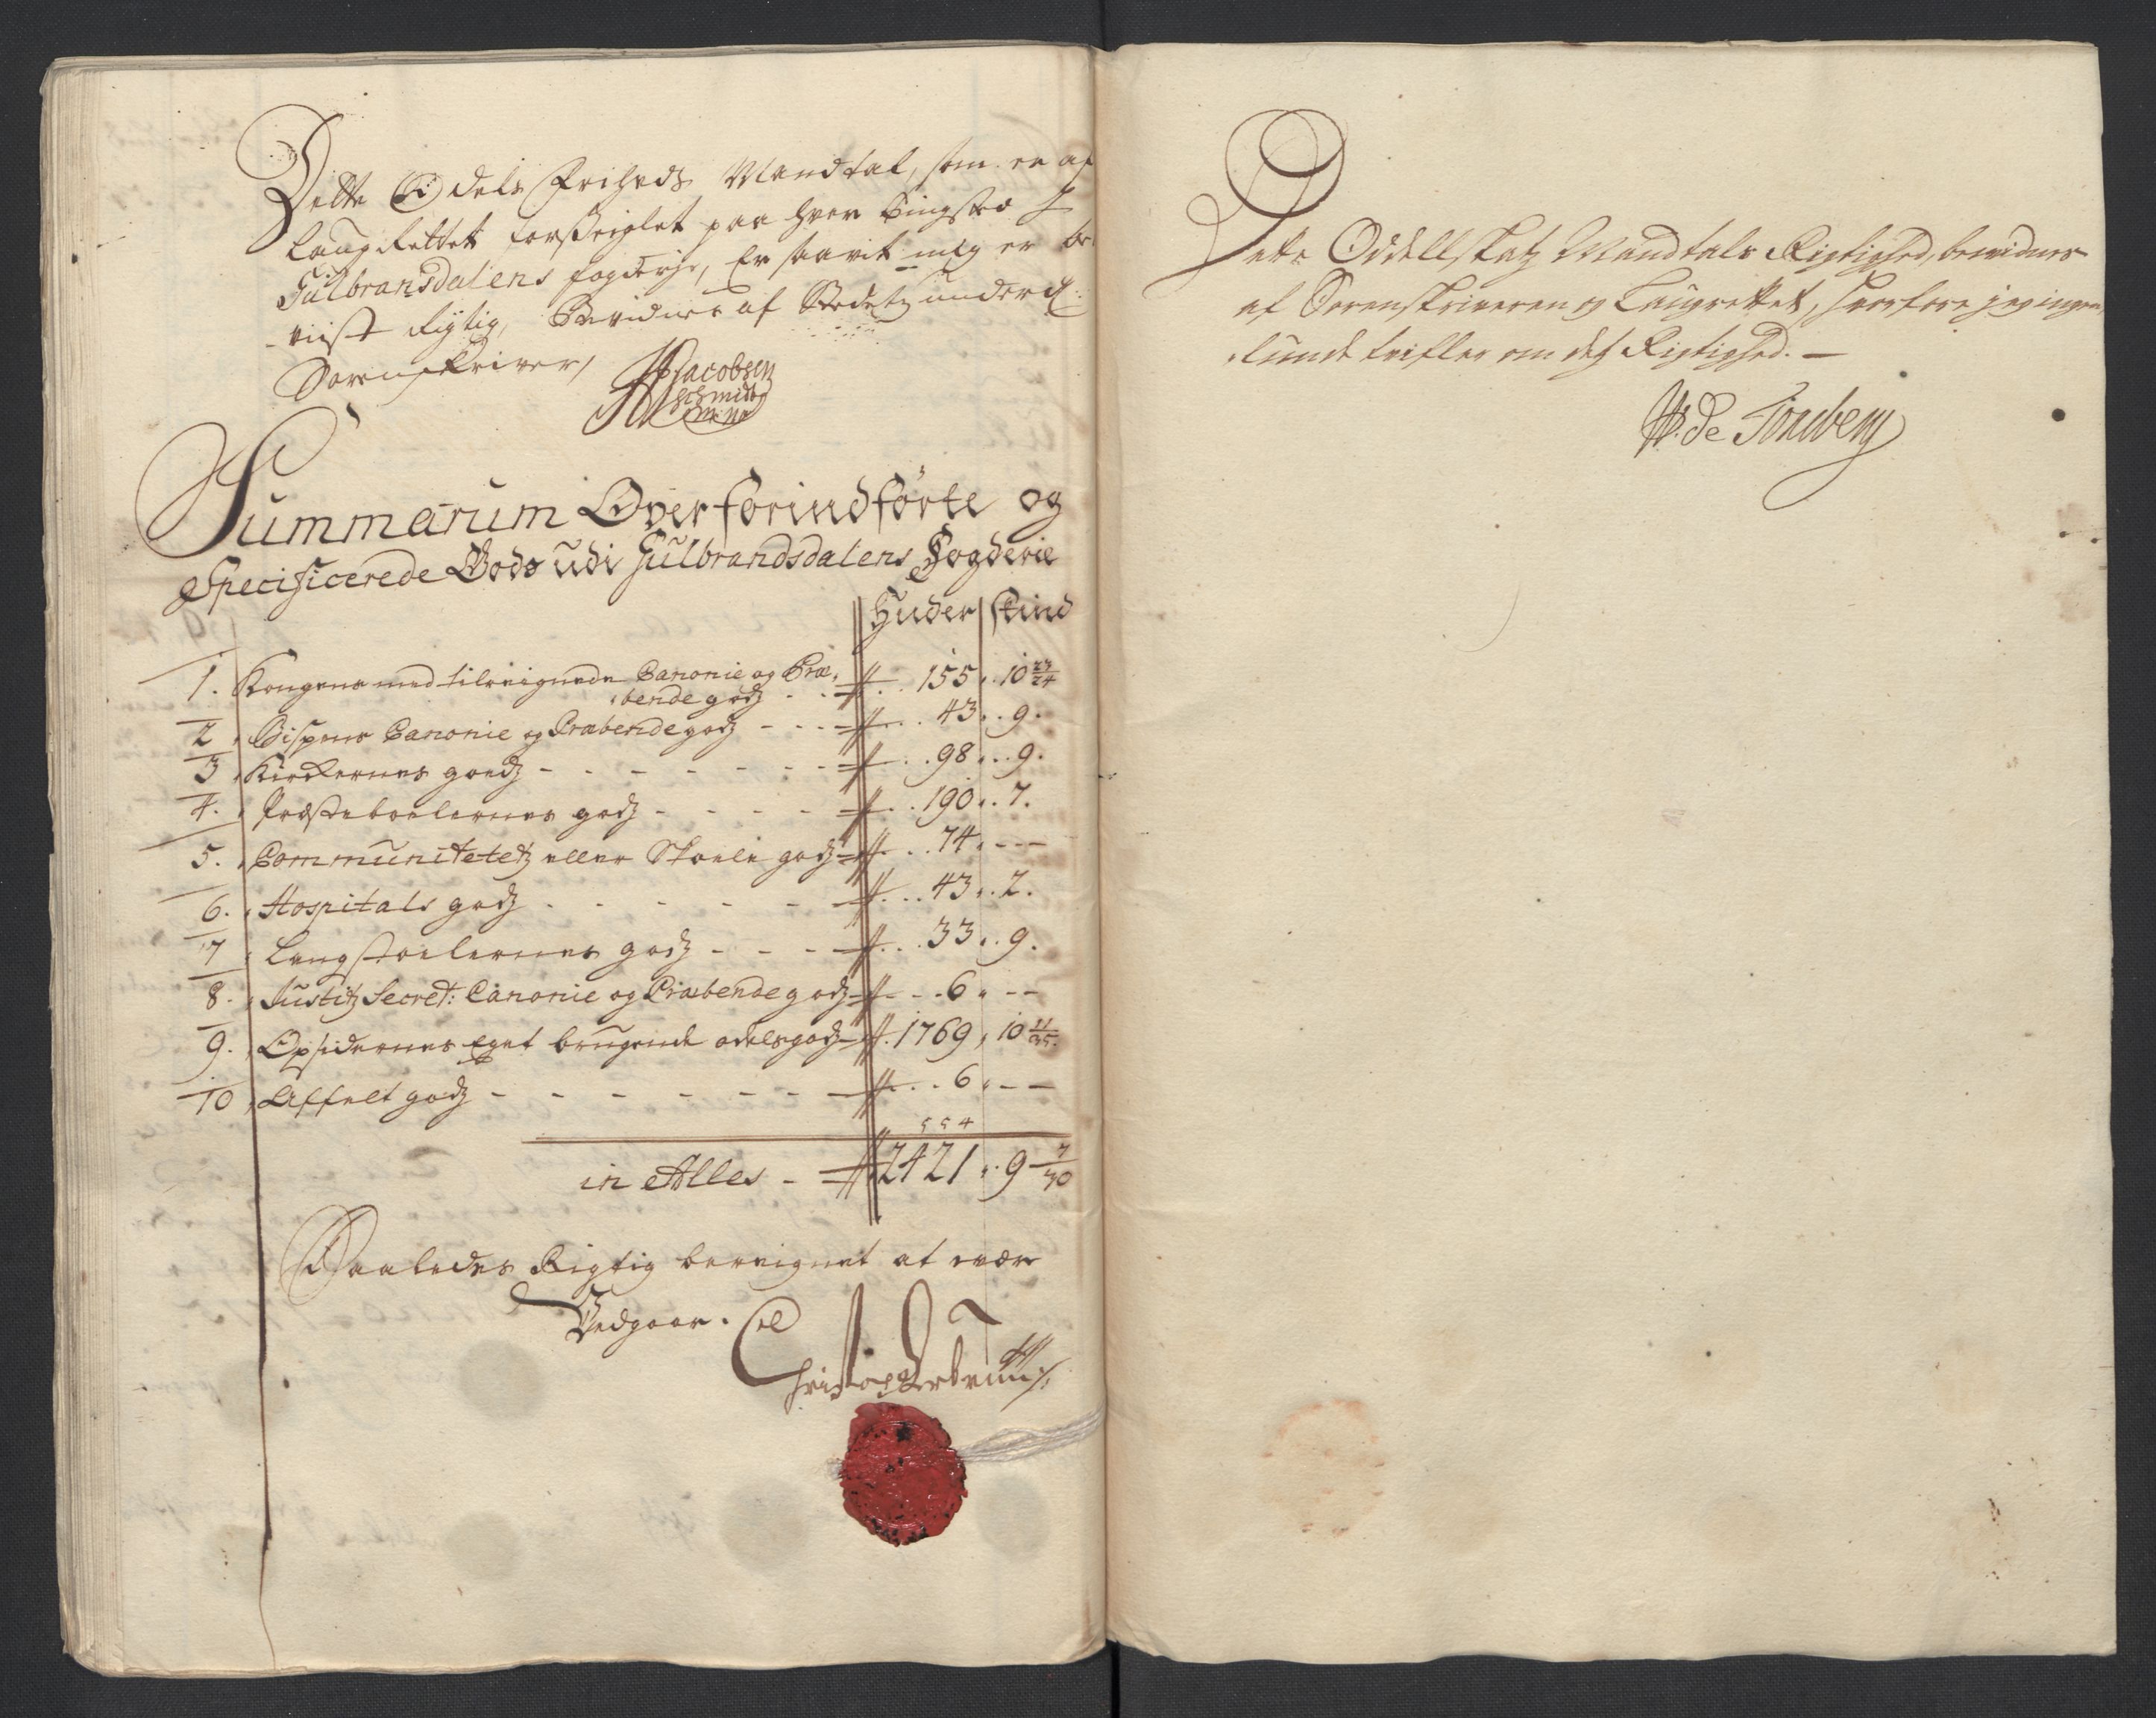 Dette Odels Friheds Mandtal, som er af
Laugrettet forseiglet paa hver Tingsted I
Gulbransdalens fogderje, Er saavit mig er be¬
viist Rigtig, Bevidner af Stedetz underd:
Sorenskriver,
Jacobsen
Schmidt
Summarum Over forindførte og
Specificerede Gods udi Gulbrandsdalens Fogderie
Huder Skind
1. Kongens med tilleignede Canonie og Præ¬
bende godz - - 155 . 10 23/24
2 Bispens Canonie og Præbende godz - - - 43 . 9.
3 Kirkernes goedz - - - - - - - 98 . 9.
4. Præsteboelernes godz - - - - 190 . 7.
5. Communitetetz eller Skoele godz 74 . - -
6. Hospitals godz - - - - - 43 . 2.
7 Lensstoelernes godz - - - 33 . 9.
8. Justitz Secret: Canonie og Præbende godz - - 6 . - -
9. Opsidernes Eget brugende odelsgodz 1769 . 10 11/35.
10 Affelt godz - - - - - - - 6 . - -
5 5 4
in Alles - 2421 . 9 7/30
Saaledes Rigtig bereignet at være
Vedgaar.
Christopher
Dette Oddellskatz Mandtals Rigtighed, bevidnes
af Sorenskriveren og Laugrettet, hvorfore jeg ingen¬
lunde tvifler om dets Rigtighed. -
W. de Tonsberg